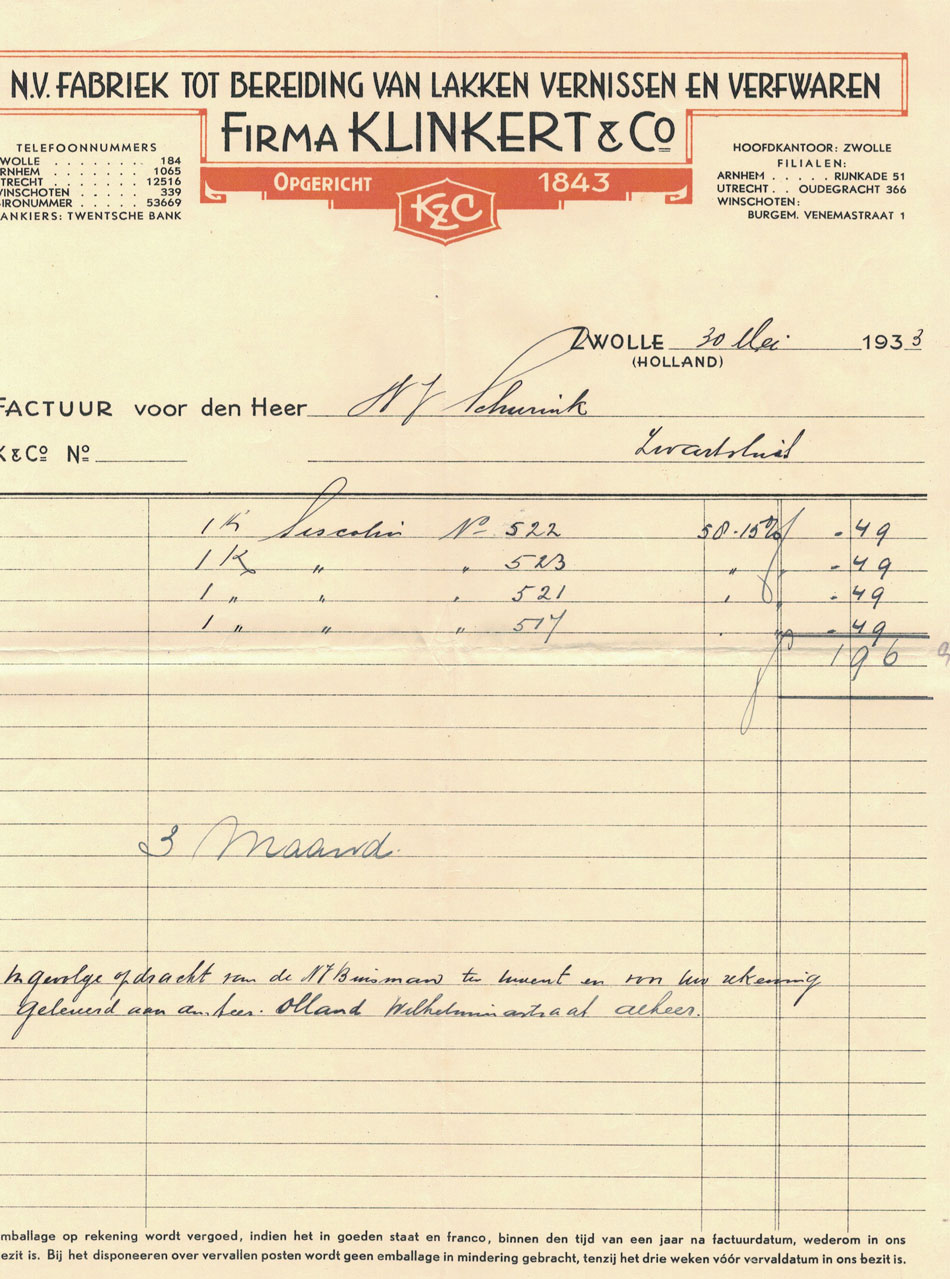 N.V. FABRIEK TOT BEREIDING VAN LAKKEN VERNISSEN EN VERFWAREN
FIRMA KLINKERT & Co
OPGERICHT 1843
KZC
TELEFOONNUMMERS
WOLLE . . . . . . . 184
RNHEM . . . . . . 1065
TRECHT . . . . . 12516
WINSCHOTEN . . . . 339
GIRONUMMER . . . . 53669
ANKIERS: TWENTSCHE BANK
HOOFDKANTOOR: ZWOLLE
FILIALEN:
ARNHEM . . . . . RIJNKADE 51
UTRECHT . . OUDEGRACHT 366
WINSCHOTEN:
BURGEM. VENEMASTRAAT 1
ZWOLLE 30 Mei 1933
(HOLLAND)
FACTUUR voor den Heer Schurink
K & Co No Zwartsluis
1 K No 522 58.15% - 49
1 K " " 523 " " - 49
1 " " " 521 " " - 49
1 " " " 517 " " - 49
196
3 Maand.
Ingevolge opdracht van de Buisman te en voor uw rekening
geleverd aan Olland Wilhelminastraat alhier.
mballage op rekening wordt vergoed, indien het in goeden staat en franco, binnen den tijd van een jaar na factuurdatum, wederom in ons
ezit is. Bij het disponeeren over vervallen posten wordt geen emballage in mindering gebracht, tenzij het drie weken vóór vervaldatum in ons bezit is.